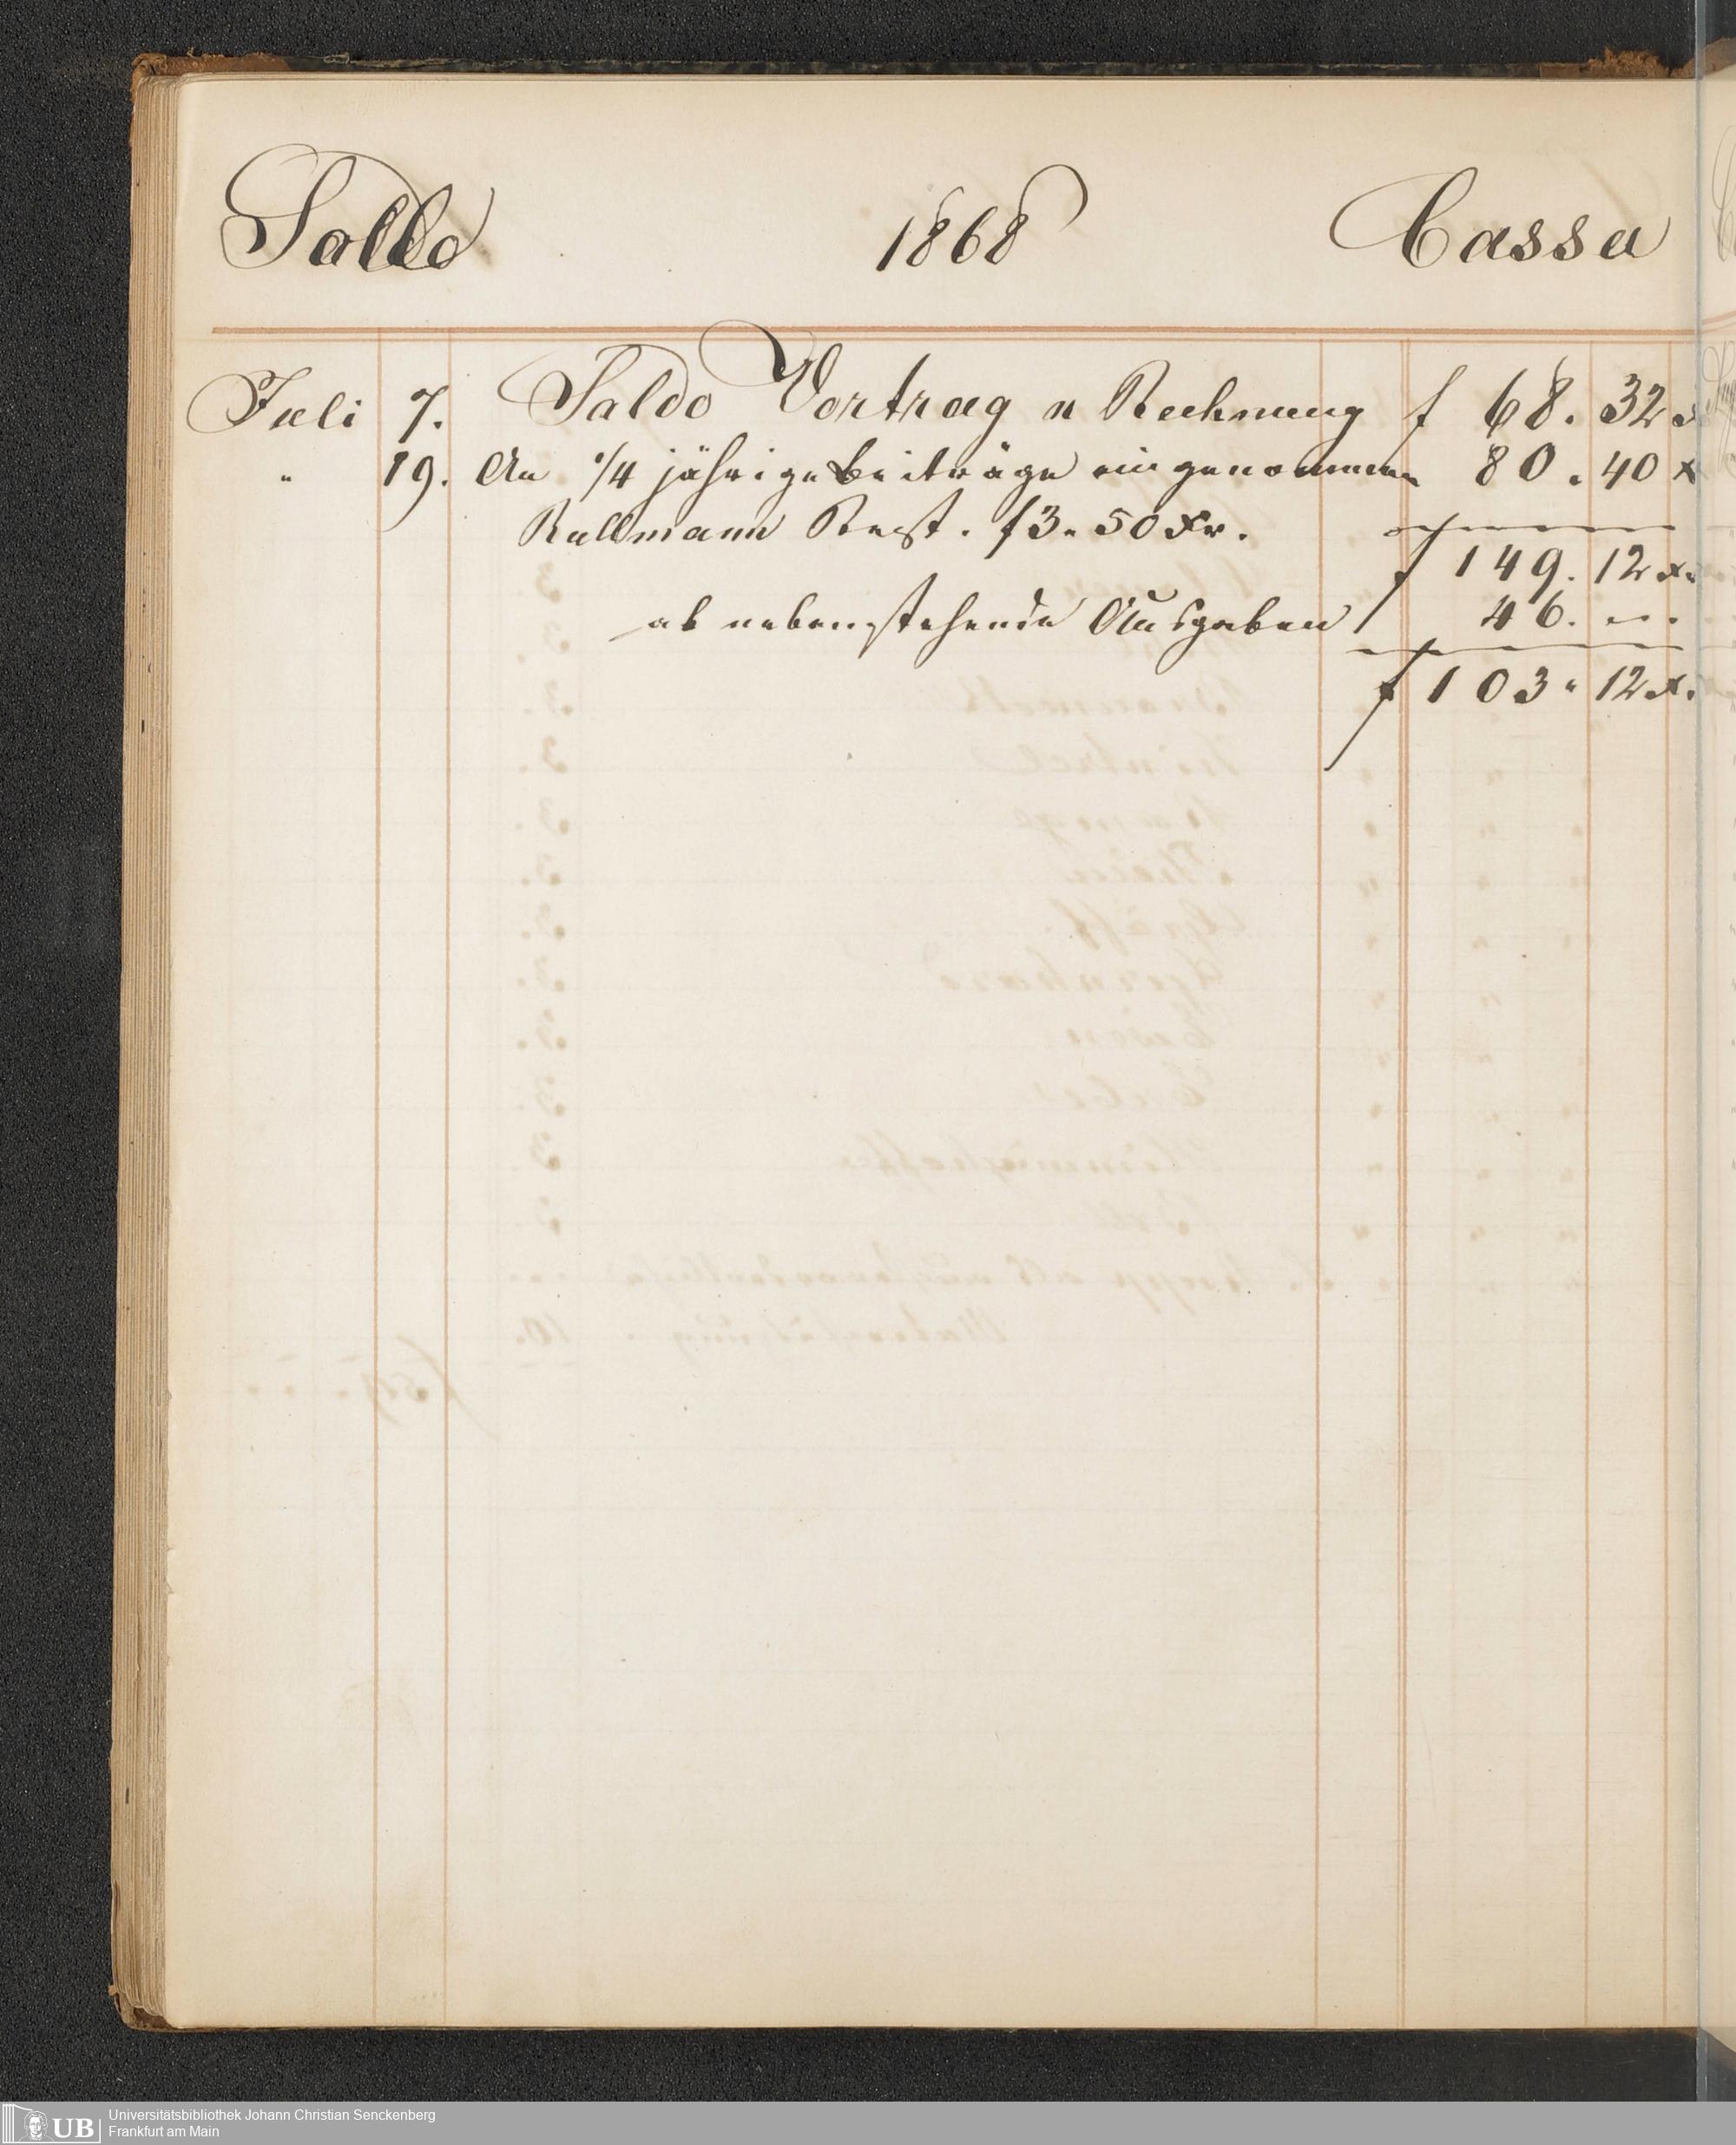 Saldo 1868 Cassa
Juli 7. Saldo Vortrag n Rechnung f 68. 32 x
" 19. An 1/4 jährige beiträge eingenommen 80. 40 x
Rullmann Rest. f 3. 50 Xr.
f 149. 12 x.
ab nebenstehende Ausgaben 46. –.
f 103. 12 x.
UB
Universitätsbibliothek Johann Christian Senckenberg
Frankfurt am Main